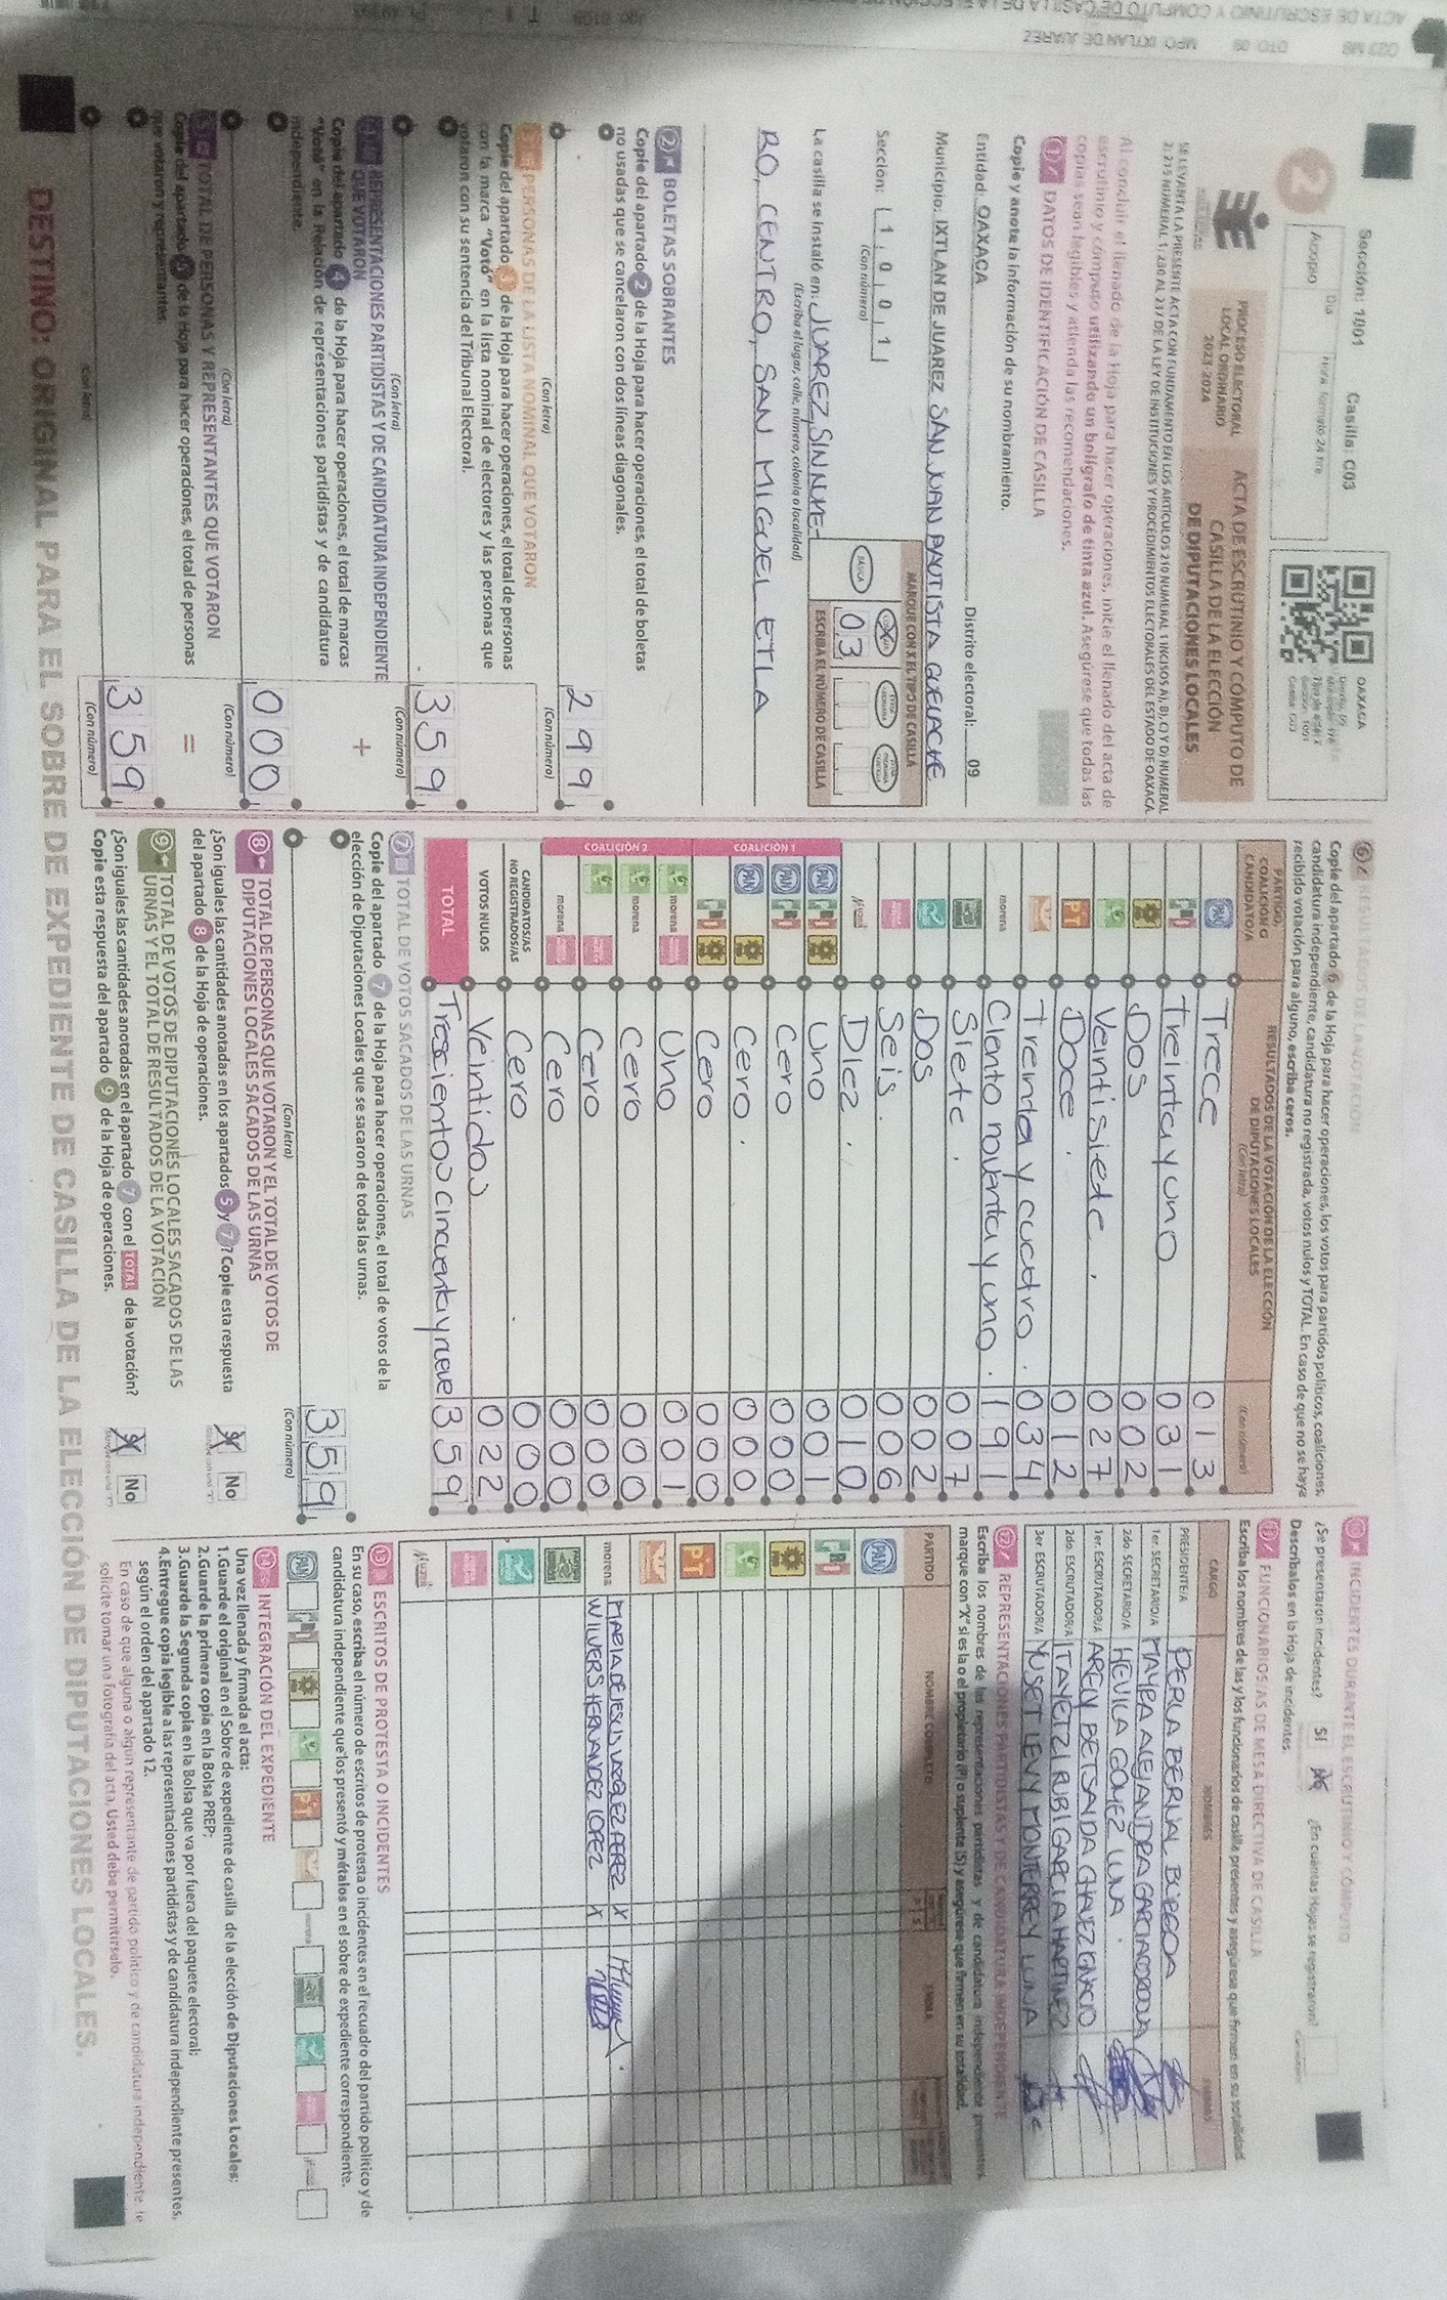 Sección: 1001 Casilla: C03
2
Acopio
Día
Hora formato 24 hrs
OAXACA
PROCESO ELECTORAL
LOCAL ORDINARIO
2023-2024
ACTA DE ESCRUTINIO Y CÓMPUTO DE
CASILLA DE LA ELECCIÓN
DE DIPUTACIONES LOCALES
SE LEVANTA LA PRESENTE ACTA CON FUNDAMENTO EN LOS ARTÍCULOS 210 NUMERAL 1 INCISOS A), B), C) Y D) NUMERAL
2; 215 NUMERAL 1; 230 AL 237 DE LA LEY DE INSTITUCIONES Y PROCEDIMIENTOS ELECTORALES DEL ESTADO DE OAXACA.
Al concluir el llenado de la Hoja para hacer operaciones, inicie el llenado del acta de
escrutinio y cómputo utilizando un bolígrafo de tinta azul. Asegúrese que todas las
copias sean legibles y atienda las recomendaciones.
1 DATOS DE IDENTIFICACIÓN DE CASILLA
Copie y anote la información de su nombramiento.
Entidad: OAXACA Distrito electoral: 09
Municipio: IXTLAN DE JUAREZ SAN JUAN BAUTISTA GUELACHE
Sección: 1 0 0 1
(Con número)
MARQUE CON X EL TIPO DE CASILLA
BÁSICA
03
ESCRIBA EL NÚMERO DE CASILLA
La casilla se instaló en: JUAREZ, SIN NUME-
(Escriba el lugar, calle, número, colonia o localidad)
RO, CENTRO, SAN MIGUEL ETLA
2 BOLETAS SOBRANTES
Copie del apartado 2 de la Hoja para hacer operaciones, el total de boletas
no usadas que se cancelaron con dos líneas diagonales.
299
(Con letra) (Con número)
PERSONAS DE LA LISTA NOMINAL QUE VOTARON
Copie del apartado 3 de la Hoja para hacer operaciones, el total de personas
con la marca “Votó” en la lista nominal de electores y las personas que
votaron con su sentencia del Tribunal Electoral.
359
(Con letra) (Con número)
REPRESENTACIONES PARTIDISTAS Y DE CANDIDATURA INDEPENDIENTE
QUE VOTARON
+
Copie del apartado 4 de la Hoja para hacer operaciones, el total de marcas
“Votó” en la Relación de representaciones partidistas y de candidatura
independiente.
000
(Con letra) (Con número)
TOTAL DE PERSONAS Y REPRESENTANTES QUE VOTARON
=
Copie del apartado 5 de la Hoja para hacer operaciones, el total de personas
que votaron y representantes.
359
(Con letra) (Con número)
6 RESULTADOS DE LA VOTACIÓN
Copie del apartado 6 de la Hoja para hacer operaciones, los votos para partidos políticos, coaliciones,
candidatura independiente, candidatura no registrada, votos nulos y TOTAL. En caso de que no se haya
recibido votación para alguno, escriba ceros.
PARTIDO,
COALICIÓN O
CANDIDATO/A
RESULTADOS DE LA VOTACIÓN DE LA ELECCIÓN
DE DIPUTACIONES LOCALES
(Con letra)
(Con número)
PAN Trece 013
PRI Treinta y uno 031
Dos 002
Veintisiete. 027
PT Doce. 012
Treinta y cuatro. 034
morena Ciento noventa y uno. 191
Siete. 007
Dos 002
Seis. 006
Diez. 010
COALICIÓN 1
PAN PRI Uno 001
PAN PRI Cero 000
PAN Cero. 000
PRI Cero 000
COALICIÓN 2
morena Uno 001
morena Cero 000
Cero 000
morena Cero 000
CANDIDATOS/AS
NO REGISTRADOS/AS Cero 000
VOTOS NULOS Veintidos 022
TOTAL Trescientos cincuenta y nueve 359
7 TOTAL DE VOTOS SACADOS DE LAS URNAS
Copie del apartado 7 de la Hoja para hacer operaciones, el total de votos de la
elección de Diputaciones Locales que se sacaron de todas las urnas.
359
(Con letra) (Con número)
8 TOTAL DE PERSONAS QUE VOTARON Y EL TOTAL DE VOTOS DE
DIPUTACIONES LOCALES SACADOS DE LAS URNAS
¿Son iguales las cantidades anotadas en los apartados 5 y 7? Copie esta respuesta
del apartado 8 de la Hoja de operaciones.
No
9 TOTAL DE VOTOS DE DIPUTACIONES LOCALES SACADOS DE LAS
URNAS Y EL TOTAL DE RESULTADOS DE LA VOTACIÓN
¿Son iguales las cantidades anotadas en el apartado 7 con el TOTAL de la votación?
Copie esta respuesta del apartado 9 de la Hoja de operaciones.
No
10 INCIDENTES DURANTE EL ESCRUTINIO Y CÓMPUTO
¿Se presentaron incidentes? SÍ ¿En cuántas Hojas se registraron?
Descríbalos en la Hoja de incidentes.
11 FUNCIONARIOS/AS DE MESA DIRECTIVA DE CASILLA
Escriba los nombres de las y los funcionarios de casilla presentes y asegúrese que firmen en su totalidad
CARGO NOMBRES FIRMAS
PRESIDENTE/A PERLA BERNAL BURGOA
1er. SECRETARIO/A MAYRA ALEJANDRA GARCIA
2do SECRETARIO/A HEVILA GOMEZ LUNA.
1er. ESCRUTADOR/A ARELY BETSAIDA CHAVEZ IGNACIO
2do. ESCRUTADOR/A ITAYETZI RUBI GARCIA MARTINEZ
3er ESCRUTADOR/A YUSET LEVY MONTERREY LUNA
12 REPRESENTACIONES PARTIDISTAS Y DE CANDIDATURA INDEPENDIENTE
Escriba los nombres de las representaciones partidistas y de candidatura independiente presentes,
marque con “X” si es la o el propietario (P) o suplente (S) y asegúrese que firmen en su totalidad.
PARTIDO NOMBRE COMPLETO FIRMA
PAN
PRI
PT
morena MARIA DE JESUS VASQUEZ PEREZ X
WILVERS HERNANDEZ LOPEZ X
13 ESCRITOS DE PROTESTA O INCIDENTES
En su caso, escriba el número de escritos de protesta o incidentes en el recuadro del partido político y de
candidatura independiente que los presentó y métalos en el sobre de expediente correspondiente.
14 INTEGRACIÓN DEL EXPEDIENTE
Una vez llenada y firmada el acta:
1.Guarde el original en el Sobre de expediente de casilla de la elección de Diputaciones Locales;
2.Guarde la primera copia en la Bolsa PREP;
3.Guarde la Segunda copia en la Bolsa que va por fuera del paquete electoral;
4.Entregue copia legible a las representaciones partidistas y de candidatura independiente presentes,
según el orden del apartado 12.
En caso de que alguna o algún representante de partido político y de candidatura independiente le
solicite tomar una fotografía del acta, Usted debe permitírselo.
DESTINO: ORIGINAL PARA EL SOBRE DE EXPEDIENTE DE CASILLA DE LA ELECCIÓN DE DIPUTACIONES LOCALES.